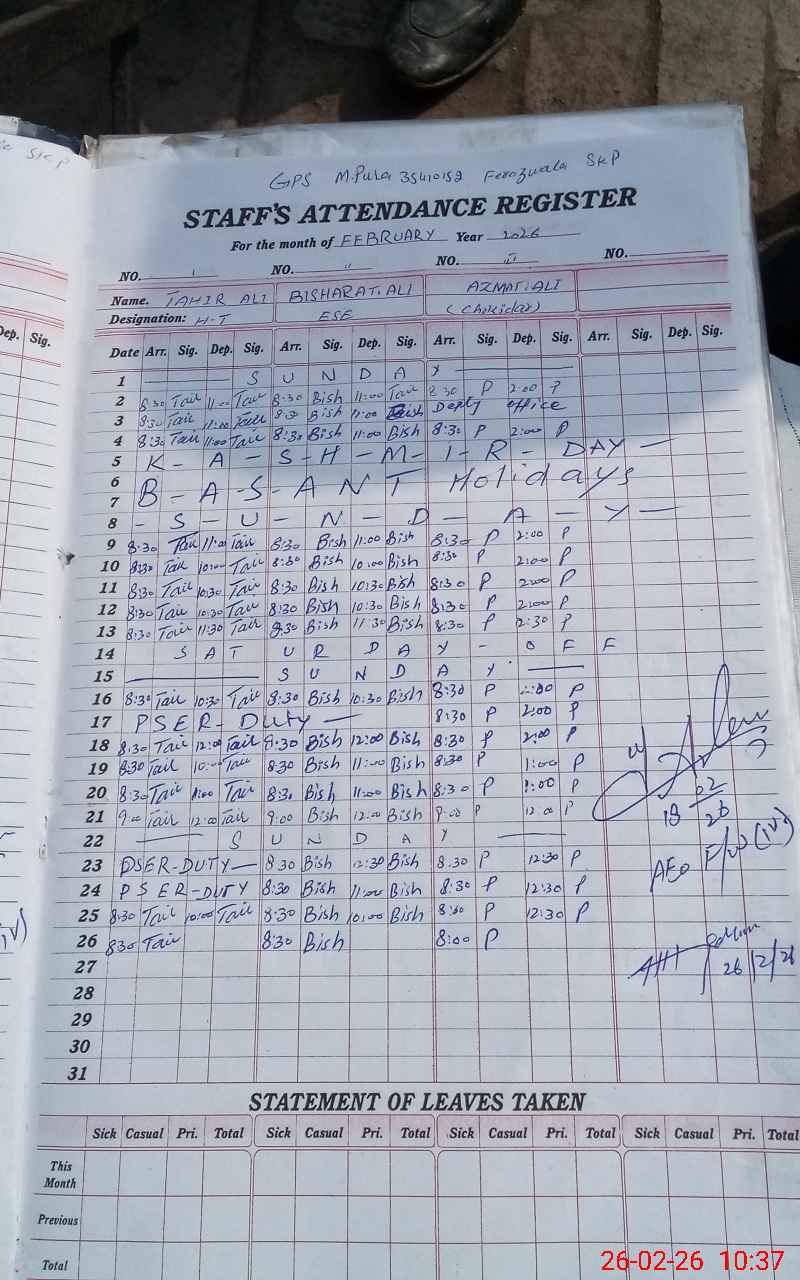 GPS M.Pura 35410152 Ferozwala SKP
STAFF'S ATTENDANCE REGISTER
For the month of FEBRUARY Year 2026
NO. I NO. II NO. III NO.
Name. TAHIR ALI BISHARAT.ALI AZMAT.ALI
Designation: H-T ESE (Chokidar)
Dep. Sig. Date Arr. Sig. Dep. Sig. Arr. Sig. Dep. Sig. Arr. Sig. Dep. Sig. Arr. Sig. Dep. Sig.
1 S U N D A Y
2 8:30 Tair 11:00 Tair 8:30 Bish 11:00 Tair 8:30 P 2:00 P
3 8:30 Tair 11:00 Tair 8:30 Bish 11:00 Bish Depty office
4 8:30 Tair 11:00 Tair 8:30 Bish 11:00 Bish 8:30 P 2:00 P
5 K - A - S - H - M - I - R - DAY -
6
7 B - A - S - A N T Holidays
8 - S - U - N - D - A - Y -
9 8:30 Tair 11:00 Tair 8:30 Bish 11:00 Bish 8:30 P 2:00 P
10 8:30 Tair 10:00 Tair 8:30 Bish 10:00 Bish 8:30 P 2:00 P
11 8:30 Tair 10:30 Tair 8:30 Bish 10:30 Bish 8:30 P 2:00 P
12 8:30 Tair 10:30 Tair 8:30 Bish 10:30 Bish 8:30 P 2:00 P
13 8:30 Tair 11:30 Tair 8:30 Bish 11:30 Bish 8:30 P 12:30 P
14 S A T U R D A Y - O F F
15 S U N D A Y
16 8:30 Tair 10:30 Tair 8:30 Bish 10:30 Bish 8:30 P 2:00 P
17 P S E R - DUTY - 8:30 P 2:00 P
18 8:30 Tair 12:00 Tair 8:30 Bish 12:00 Bish 8:30 P 2:00 P
19 8:30 Tair 10:00 Tair 8:30 Bish 11:00 Bish 8:30 P 1:00 P
20 8:30 Tair 11:00 Tair 8:30 Bish 11:00 Bish 8:30 P 1:00 P
18 02 26
21 9:00 Tair 12:00 Tair 9:00 Bish 12:00 Bish 9:00 P 12:00 P
22 S U N D A Y
23 PSER-DUTY - 8:30 Bish 12:30 Bish 8:30 P 12:30 P
AEO F/W (IV)
24 P S E R - DUTY 8:30 Bish 11:00 Bish 8:30 P 12:30 P
25 8:30 Tair 10:00 Tair 8:30 Bish 10:00 Bish 8:00 P 12:30 P
26 8:30 Tair 8:30 Bish 8:00 P
26/2/26
27
28
29
30
31
STATEMENT OF LEAVES TAKEN
Sick Casual Pri. Total Sick Casual Pri. Total Sick Casual Pri. Total Sick Casual Pri. Total
This Month
Previous
Total
26-02-26 10:37